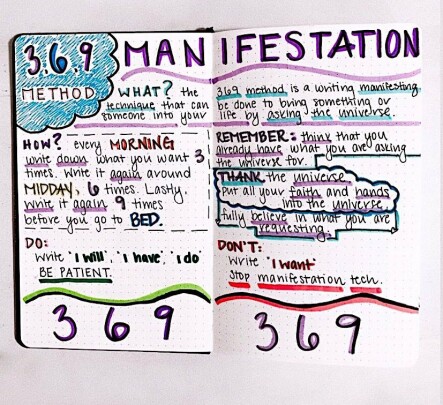 3.6.9
METHOD
MANIFESTATION
WHAT? the 369 method is a writing manifesting
technique that can be done to bring something or
someone into your life by asking the universe.
HOW? every MORNING
write down what you want 3
times. Write it again around
MIDDAY, 6 times. Lastly,
write it again 9 times
before you go to BED.
REMEMBER: think that you
already have what you are asking
the universe for.
THANK the universe
put all your faith and hands
into the universe,
fully believe in what you are
requesting.
DO:
Write "I will", "I have", "I do"
BE PATIENT.
DON'T:
Write "I want"
Stop manifestation tech.
3 6 9
3 6 9